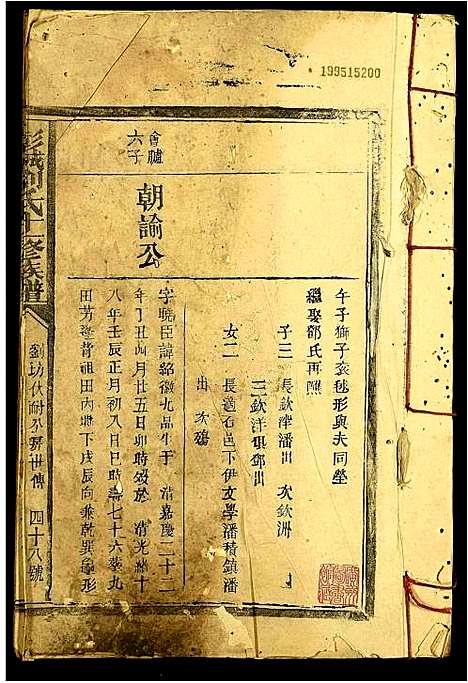 199515200
午子獅子滾毬形與夫同塋
繼娶鄧氏再醮
子三 長欽澤潘出 次欽洲
三欽洋俱鄧出
女二 長適石邑下伊文學潘積鎮潘
出 次殤
字曉臣諱紹徽九品生于 清嘉慶二十二
年丁丑四月廿五日卯時歿於 清光緒十
八年壬辰正月初八日巳時壽七十六葬九
田芳 背祖田內地丁戌辰向兼乾巽 形
朝諭公
會臚
六子
彭城劉氏十一修族譜
劉坊伏耐公房世傳 四十八號